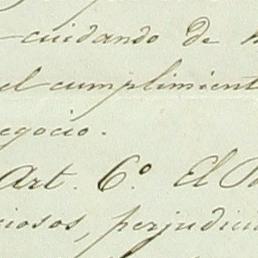 cuidando de
el cumplimient
egocio.
Art. 6.º El
ciosos, perjudici